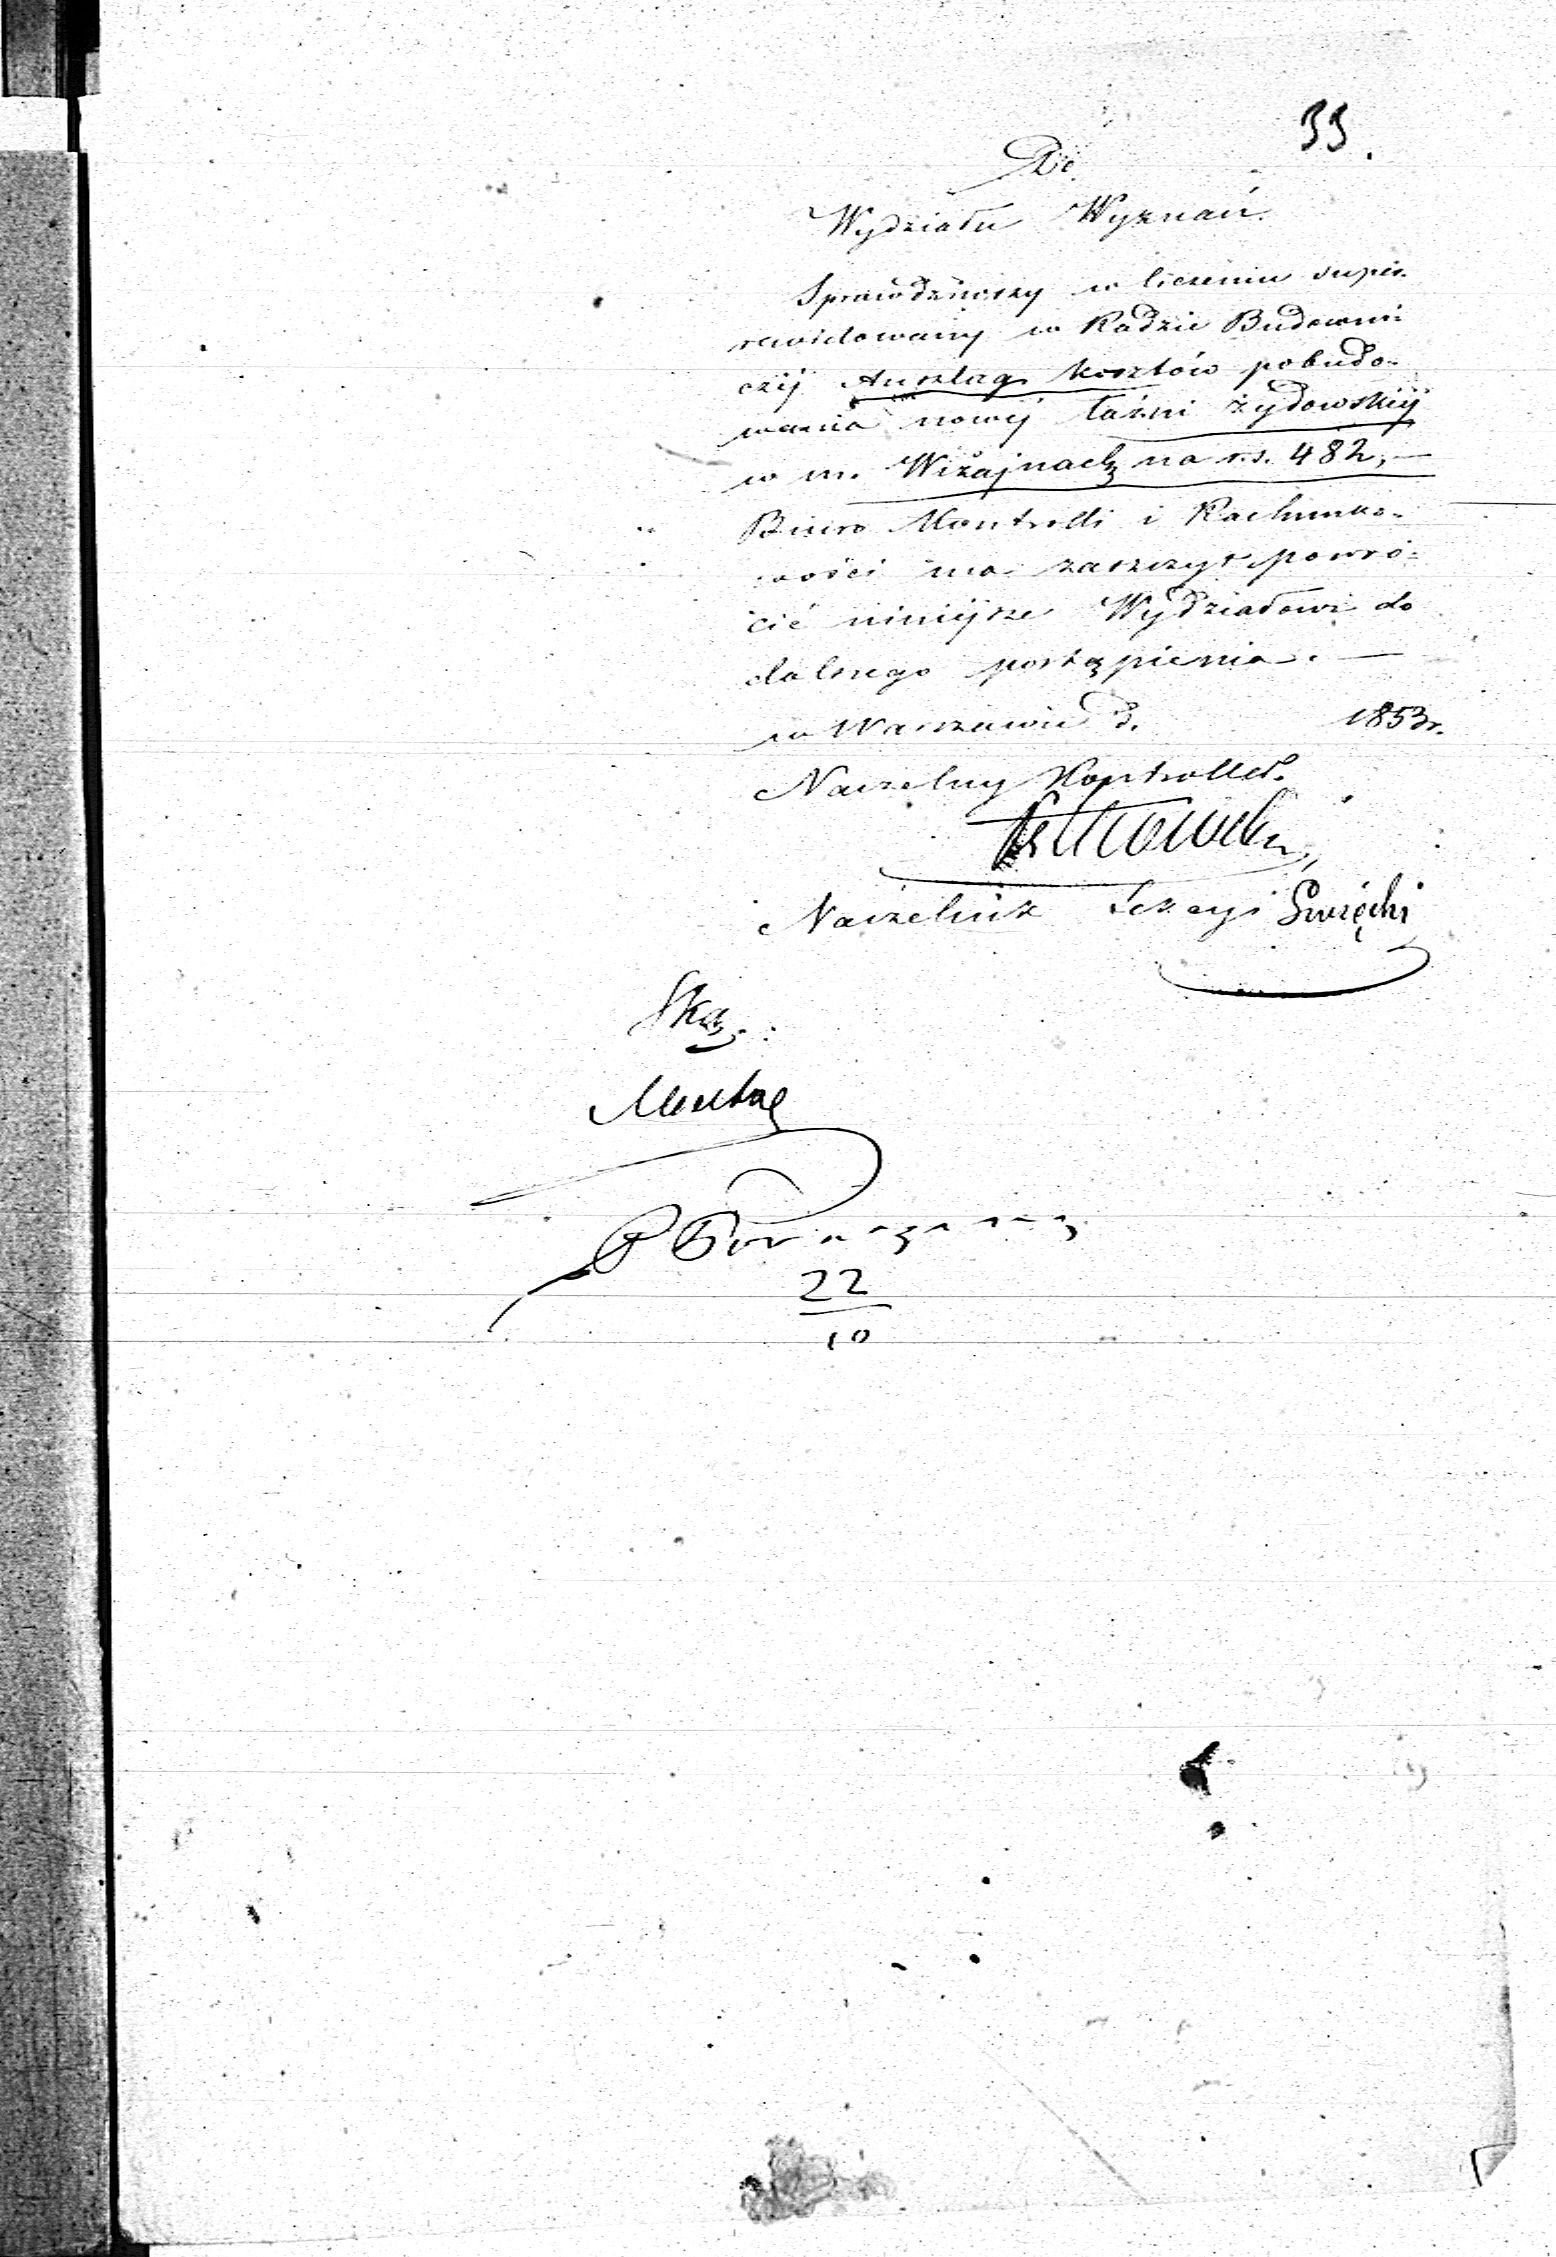 33.
Do
Wydziału Wyznań.
Sprawdziwszy w liczeniu super-
rewidowany w Radzie Budowni-
czéj Anszlag kosztów pobudo-
wania nowéj łaźni żydowskiéj
w m. Wiżajnach na r.s. 482, —
Biuro Kontrolli i Rachunko-
wości ma zaszczyt powró-
cić niniejsze Wydziałowi do
dalszego postąpienia. —
w Warszawie d. 1853 r.
Naczelny Kontroller
Naczelnik Sekcyi Święcki
22
10